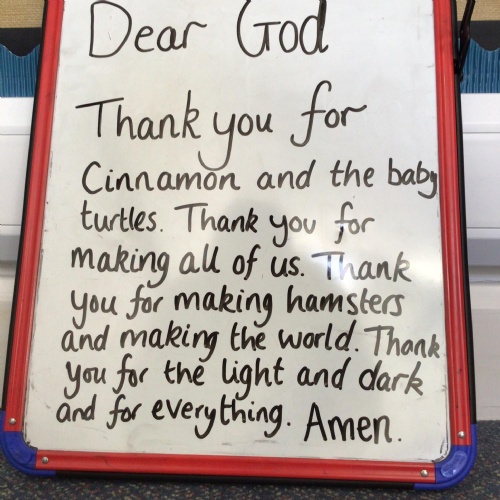 Dear God
Thank you for
Cinnamon and the baby
turtles. Thank you for
making all of us. Thank
you for making hamsters
and making the world. Thank
you for the light and dark
and for everything. Amen.